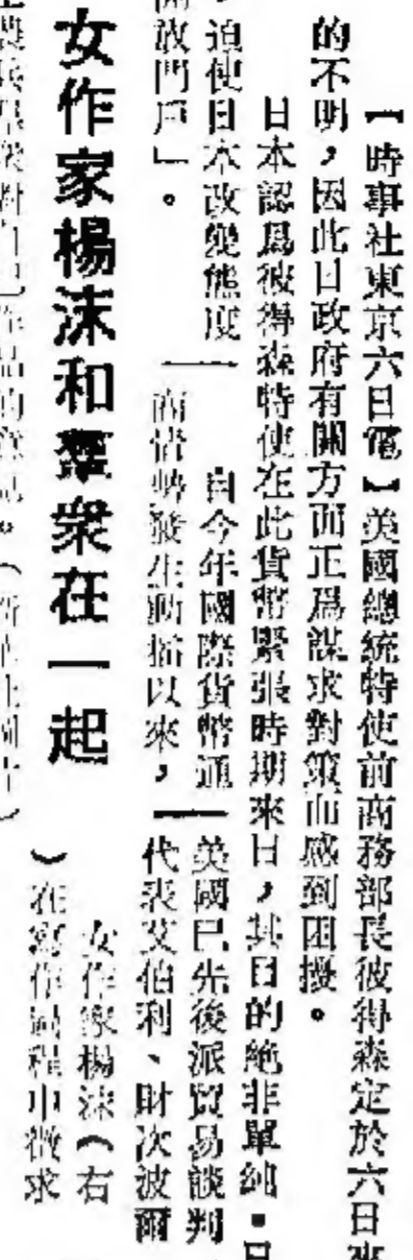 【時事社東京六日電】美國總統特使前商務部長彼得森定於六日來
的不明，因此日政府有關方面正爲謀求對策而感到困擾。
日本認爲彼得森特使在此貨幣緊張時期來日，其目的絕非單純。日
，迫使日本改變態度
開放門戶」。
自今年國際貨幣通
商情勢發生動搖以來，
美國已先後派貿易談判
代表艾伯利、財次波爾
女作家楊沫和羣衆在一起
女作家楊沫（右
）在寫作過程中徵求
對自己作品的意見。（新華社圖片）